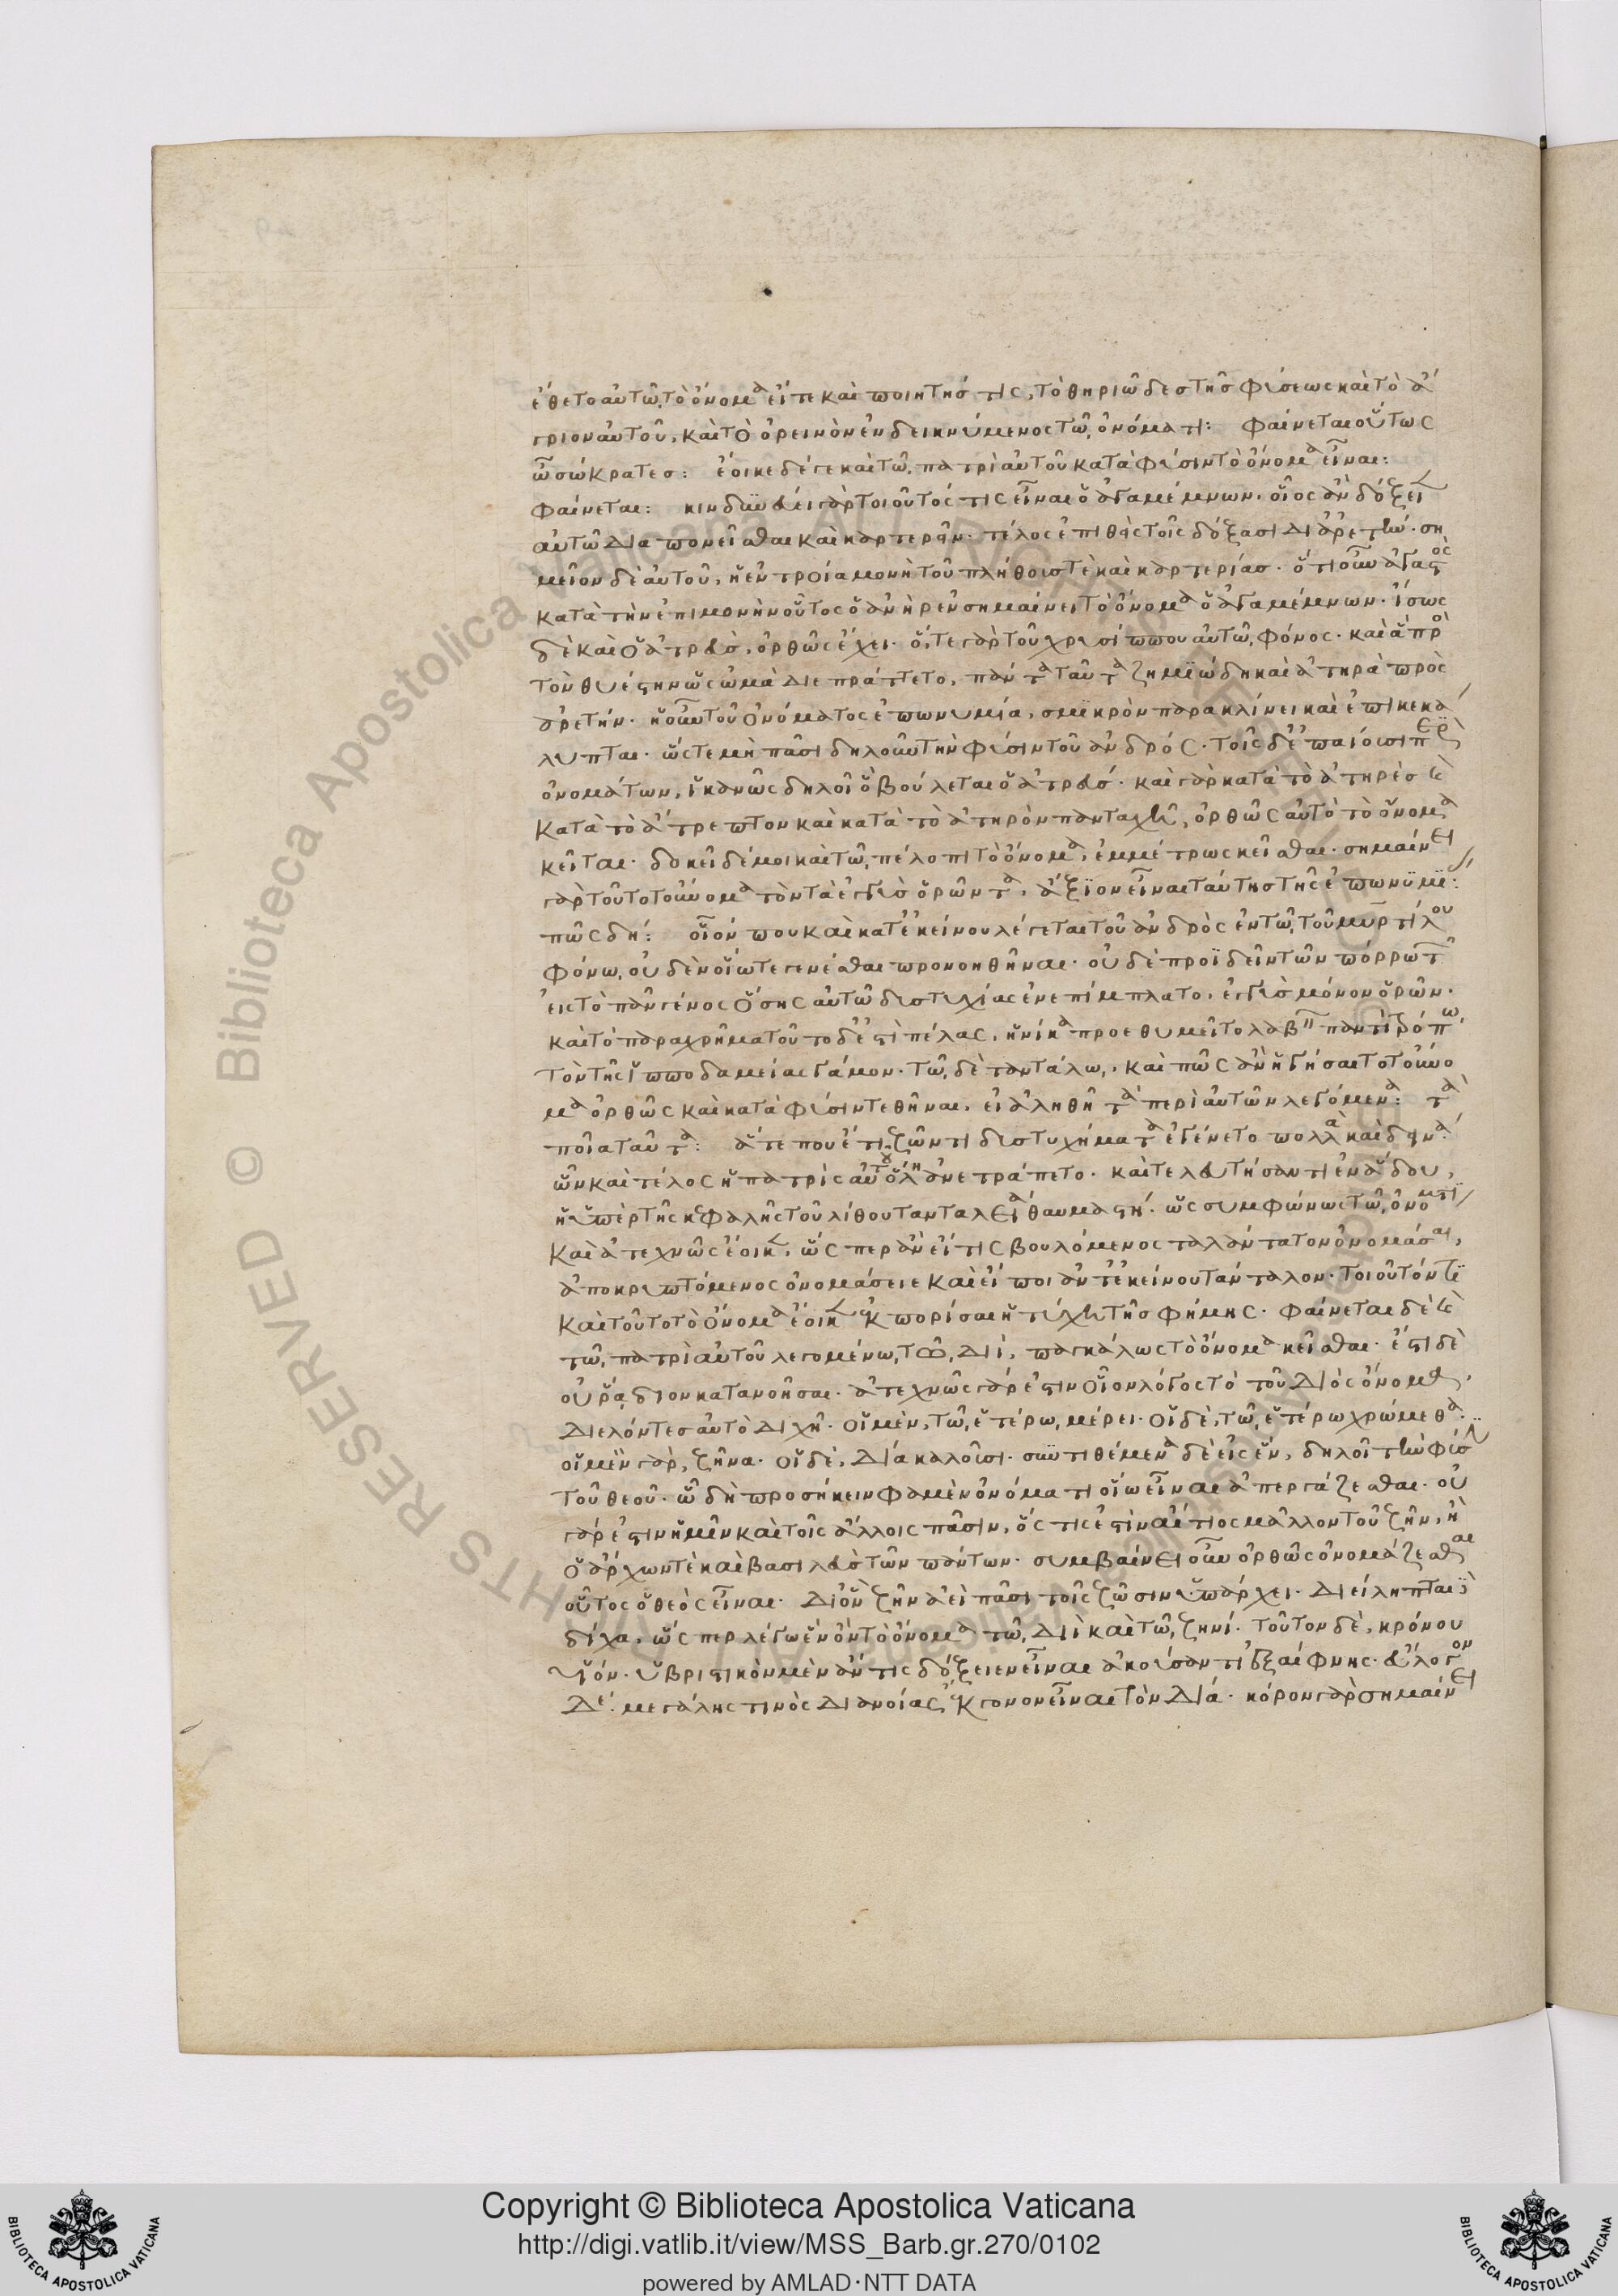 ἔθετο αὐτῶ, τὸ ὄνομα εἴτε καὶ ποιητής τις, τὸ θηριῶδες τῆς φύσεως καὶ τὸ ἄ
γριον αὐτοῦ, καὶ τὸ ὀρεινὸν ἐνδεικνύμενος τῶ, ὀνόματι: φαίνεται οὕτως
ὦ σώκρατες: ἔοικε δέ γε καὶ τῶ, πατρὶ αὐτοῦ κατὰ φύσιν τὸ ὄνομα εἶναι:
φαίνεται: κινδυνεύει γὰρ τοιοῦτός τις εἶναι ὁ ἀγαμέμνων. οἷος ἂν δόξει
αὐτῶ διαπονεῖσθαι καὶ καρτερεῖν. τέλος ἐπιθεὶς τοῖς δόξασι δι ἀρετήν. ση
μεῖον δὲ αὐτοῦ, ἡ ἐν τροία μονὴ τοῦ πλήθους τὲ καὶ καρτερίας. ὅτι οὖν ἀγαστὸς
κατὰ τὴν ἐπιμονὴν οὗτος ὁ ἀνὴρ ἐνσημαίνει τὸ ὄνομα ὁ ἀγαμέμνων. ἴσως
δὲ καὶ ὁ ἀτρεὺς, ὀρθῶς ἔχει. ὅ,τε γὰρ τοῦ χρυσίππου αὐτῶ, φόνος. καὶ ἃ πρὸς
τὸν θυέστην ὡς ὠμὰ διεπράττετο, πάντα ταῦτα ζημιώδη καὶ ἀτηρὰ πρὸς
ἀρετήν. ἡ οὖν τοῦ ὀνόματος ἐπωνυμία, σμικρὸν παρακλίνει καὶ ἐπικεκά
λυπται. ὥστε μὴ πᾶσι δηλοῦν τὴν φύσιν τοῦ ἀνδρός. τοῖς δ' ἐπαΐουσι περὶ
ὀνομάτων, ἱκανῶς δηλοῖ ὃ βούλεται ὁ ἀτρεύς. καὶ γὰρ κατὰ τὸ ἀτηρὲς καὶ
κατὰ τὸ ἄτρεπτον καὶ κατὰ τὸ ἀτηρὸν πανταχῆ, ὀρθῶς αὐτὸ τὸ ὄνομα
κεῖται. δοκεῖ δέ μοι καὶ τῶ, πέλοπι τὸ ὄνομα, ἐμμέτρως κεῖσθαι. σημαίνει
γὰρ τοῦτο τοὔνομα τὸν τὰ ἐγγὺς ὁρῶντα, ἄξιον εἶναι ταύτης τῆς ἐπωνυμίας:
πῶς δή: οἷόν που καὶ κατ' ἐκείνου λέγεται τοῦ ἀνδρὸς ἐν τῶ, τοῦ μυρτίλου
φόνω, οὐδὲν οἵω τε γενέσθαι προνοηθῆναι. οὐδὲ προϊδεῖν τῶν πόρρω τῶν
εἰς τὸ πᾶν γένος ὅσης αὐτῶ δυστυχίας ἐνεπίμπλατο, ἐγγὺς μόνον ὁρῶν.
καὶ τὸ παραχρῆμα τοῦτο δ' ἐστὶ πέλας, ἡνίκα προεθυμεῖτο λαβεῖν παντὶ τρόπω
τὸν τῆς ἱπποδαμείας γάμον. τῶ, δὲ ταντάλω,. καὶ πῶς ἂν ἡγήσαιτο τοὔνο
μα ὀρθῶς καὶ κατὰ φύσιν τεθῆναι, εἰ ἀληθῆ τὰ περὶ αὐτῶν λεγόμενα: τὰ
ποῖα ταῦτα: ἅ τε που ἔτι ζῶντι δυστυχήματα ἐγένετο πολλὰ καὶ δεινά.
ὧν καὶ τέλος ἡ πατρὶς αὐτοῦ ὅλη ἀνετράπετο. καὶ τελευτήσαντι ἐν ἅδου,
ἡ ὑπὲρ τῆς κεφαλῆς τοῦ λίθου τανταλεία θαυμαστή. ὡς συμφώνως τῶ, ὀνόματι
καὶ ἀτεχνῶς ἔοικε, ὥσπερ ἂν εἴ τις βουλόμενος ταλάντατον ὀνομάσαι,
ἀποκρυπτόμενος ὀνομάσειε καὶ εἴποι ἀντ' ἐκείνου τάνταλον. τοιοῦτόν τι
καὶ τοῦτο τὸ ὄνομα ἔοικεν ἐκπορίσαι ἡ τύχη τῆς φήμης. φαίνεται δὲ καὶ
τῶ, πατρὶ αὐτοῦ λεγομένω, τῶ, διὶ, παγκάλως τὸ ὄνομα κεῖσθαι. ἔστι δὲ
οὐ ῥάδιον κατανοῆσαι. ἀτεχνῶς γάρ ἐστιν οἷον λόγος τὸ τοῦ διὸς ὄνομα,
διελόντες αὐτὸ διχῆ. οἱ μὲν, τῶ, ἑτέρω, μέρει. οἱ δὲ, τῶ, ἑτέρω χρώμεθα.
οἱ μὲν γὰρ, ζῆνα. οἱ δὲ, δία καλοῦσι. συντιθέμενα δὲ εἰς ἓν, δηλοῖ τὴν φύσιν
τοῦ θεοῦ. ὧ δὴ προσήκειν φαμὲν ὀνόματι οἵω εἶναι ἀπεργάζεσθαι. οὐ
γάρ ἐστιν ἡμῖν καὶ τοῖς ἄλλοις πᾶσιν, ὅς τις ἐστὶν αἴτιος μᾶλλον τοῦ ζῆν, ἢ
ὁ ἄρχων τὲ καὶ βασιλεὺς τῶν πάντων. συμβαίνει οὖν ὀρθῶς ὀνομάζεσθαι
οὗτος ὁ θεὸς εἶναι. δι ὃν ζῆν ἀεὶ πᾶσι τοῖς ζῶσιν ὑπάρχει. διείληπται
δίχα, ὥσπερ λέγω ἓν ὂν τὸ ὄνομα τῶ, διὶ καὶ τῶ, ζηνί. τοῦτον δὲ, κρόνου
υἱόν. ὑβριστικὸν μὲν ἄν τις δόξειεν εἶναι ἀκούσαντι ἐξαίφνης. εὔλογον
δέ. μεγάλης τινὸς διανοίας ἔκγονον εἶναι τὸν δία. κόρον γὰρ σημαίνει
Copyright © Biblioteca Apostolica Vaticana
http://digi.vatlib.it/view/MSS_Barb.gr.270/0102
powered by AMLAD·NTT DATA